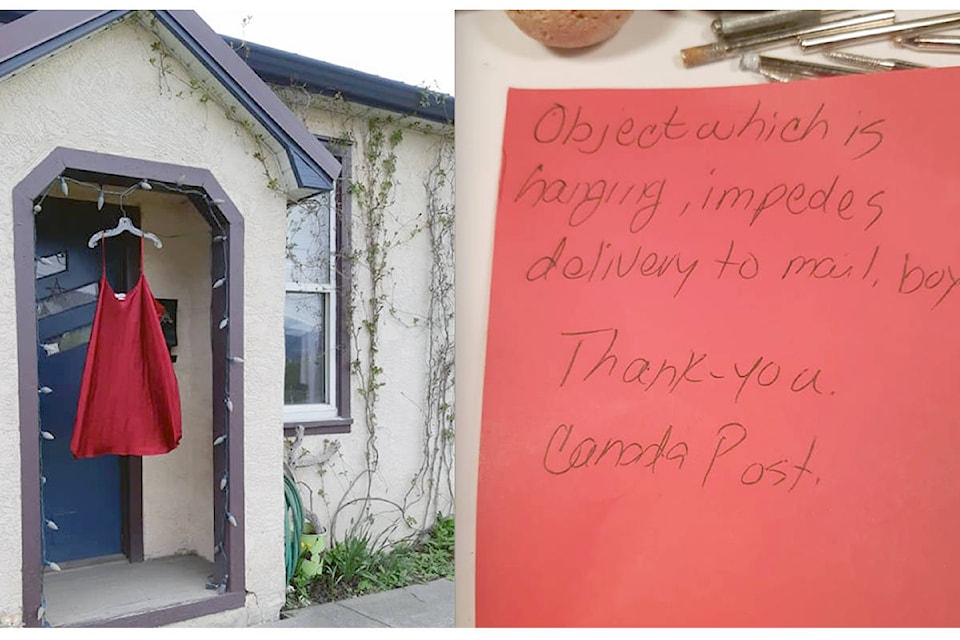 Object which is
hanging, impedes
delivery to mail, box
Thank-you.
Canada Post.